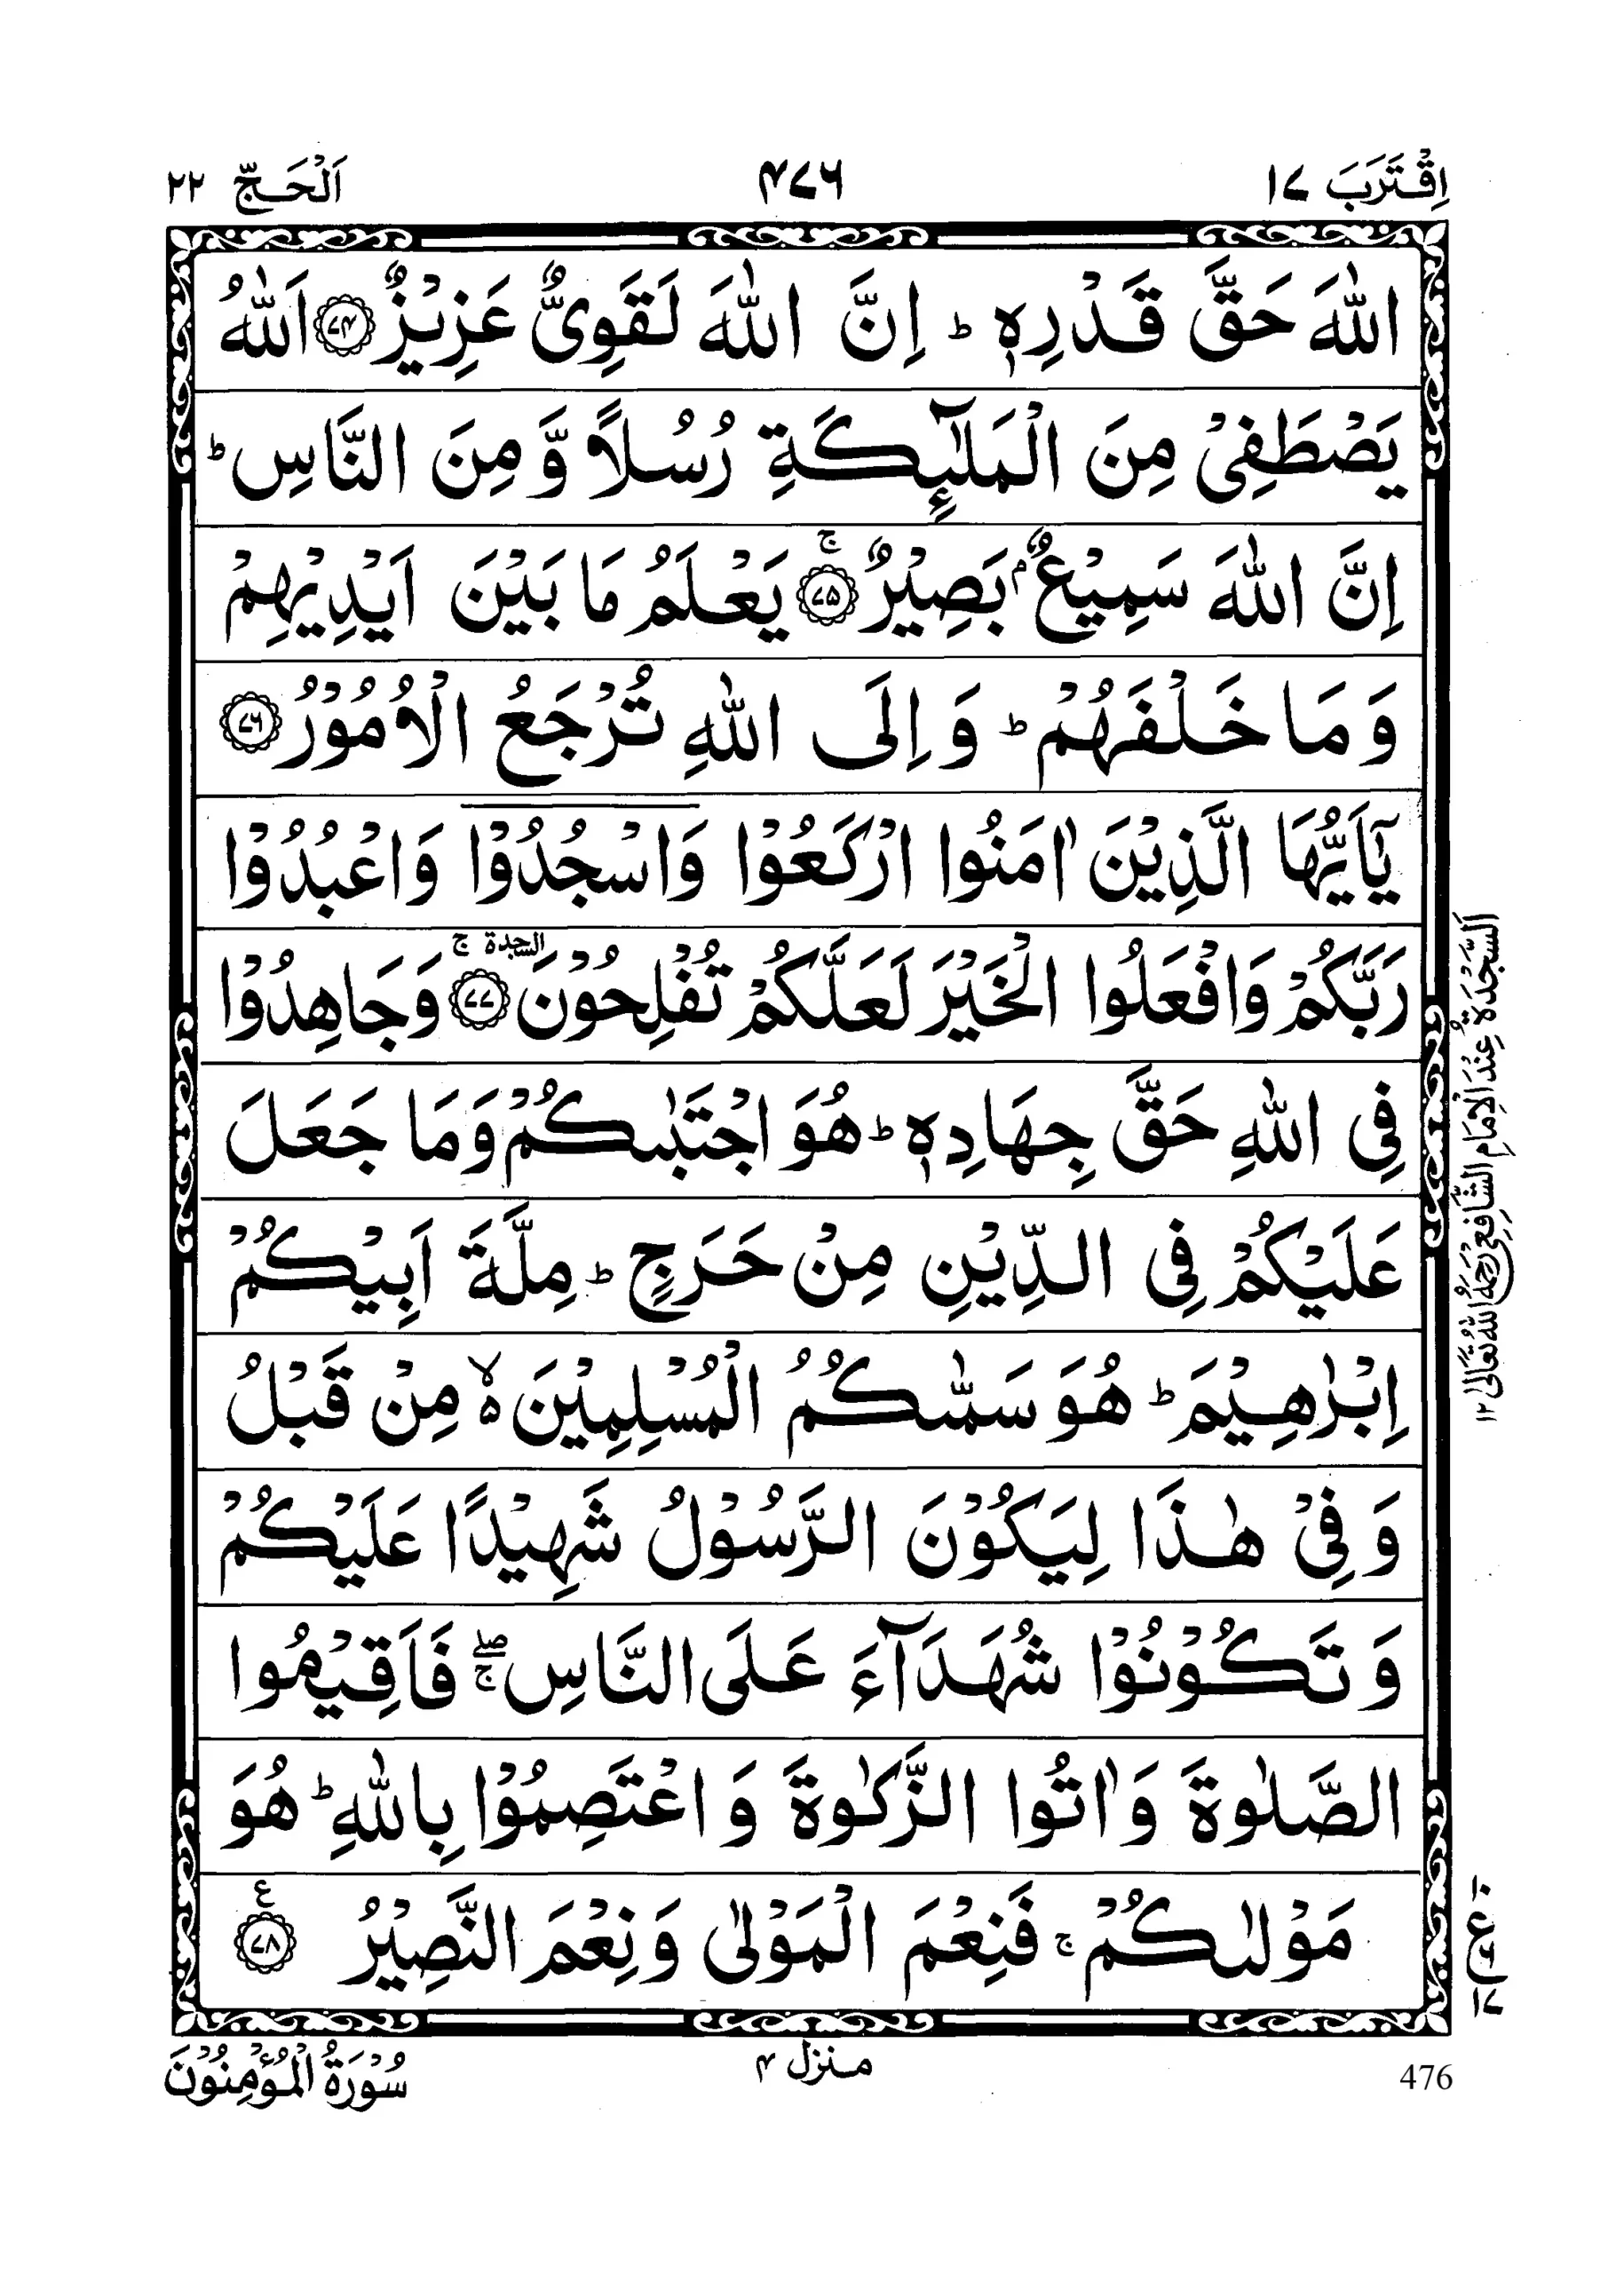 اِقْتَرَبَ ۱۷ ۴۷۶ اَلْحَجّ ۲۲
اللّٰهَ حَقَّ قَدْرِهٖ ؕ اِنَّ اللّٰهَ لَقَوِیٌّ عَزِیْزٌ ۟۷۴ اَللّٰهُ
یَصْطَفِیْ مِنَ الْمَلٰٓىِٕكَةِ رُسُلًا وَّ مِنَ النَّاسِ ؕ
اِنَّ اللّٰهَ سَمِیْعٌۢ بَصِیْرٌ ۟ۚ۷۵ یَعْلَمُ مَا بَیْنَ اَیْدِیْهِمْ
وَ مَا خَلْفَهُمْ ؕ وَ اِلَی اللّٰهِ تُرْجَعُ الْاُمُوْرُ ۟۷۶
یٰۤاَیُّهَا الَّذِیْنَ اٰمَنُوا ارْكَعُوْا وَاسْجُدُوْا وَاعْبُدُوْا
رَبَّكُمْ وَافْعَلُوا الْخَیْرَ لَعَلَّكُمْ تُفْلِحُوْنَ ۟ۚ۷۷ السجدة وَجَاهِدُوْا
فِی اللّٰهِ حَقَّ جِهَادِهٖ ؕ هُوَ اجْتَبٰىكُمْ وَمَا جَعَلَ
عَلَیْكُمْ فِی الدِّیْنِ مِنْ حَرَجٍ ؕ مِلَّةَ اَبِیْكُمْ
اِبْرٰهِیْمَ ؕ هُوَ سَمّٰىكُمُ الْمُسْلِمِیْنَ ۙ۬ مِنْ قَبْلُ
وَ فِیْ هٰذَا لِیَكُوْنَ الرَّسُوْلُ شَهِیْدًا عَلَیْكُمْ
وَ تَكُوْنُوْا شُهَدَآءَ عَلَی النَّاسِ ۖۚ فَاَقِیْمُوا
الصَّلٰوةَ وَ اٰتُوا الزَّكٰوةَ وَ اعْتَصِمُوْا بِاللّٰهِ ؕ هُوَ
مَوْلٰىكُمْ ۚ فَنِعْمَ الْمَوْلٰی وَ نِعْمَ النَّصِیْرُ ۟۷۸ ع
اَلسَّجْدَةُ عِنْدَ الْاِمَامِ الشَّافِعِیِّ رَحِمَهُ اللّٰهُ تَعَالٰی ۱۲
۱۰ ع ۱۷
476 منزل ۴ سُوْرَةُ الْمُؤْمِنُوْنَ